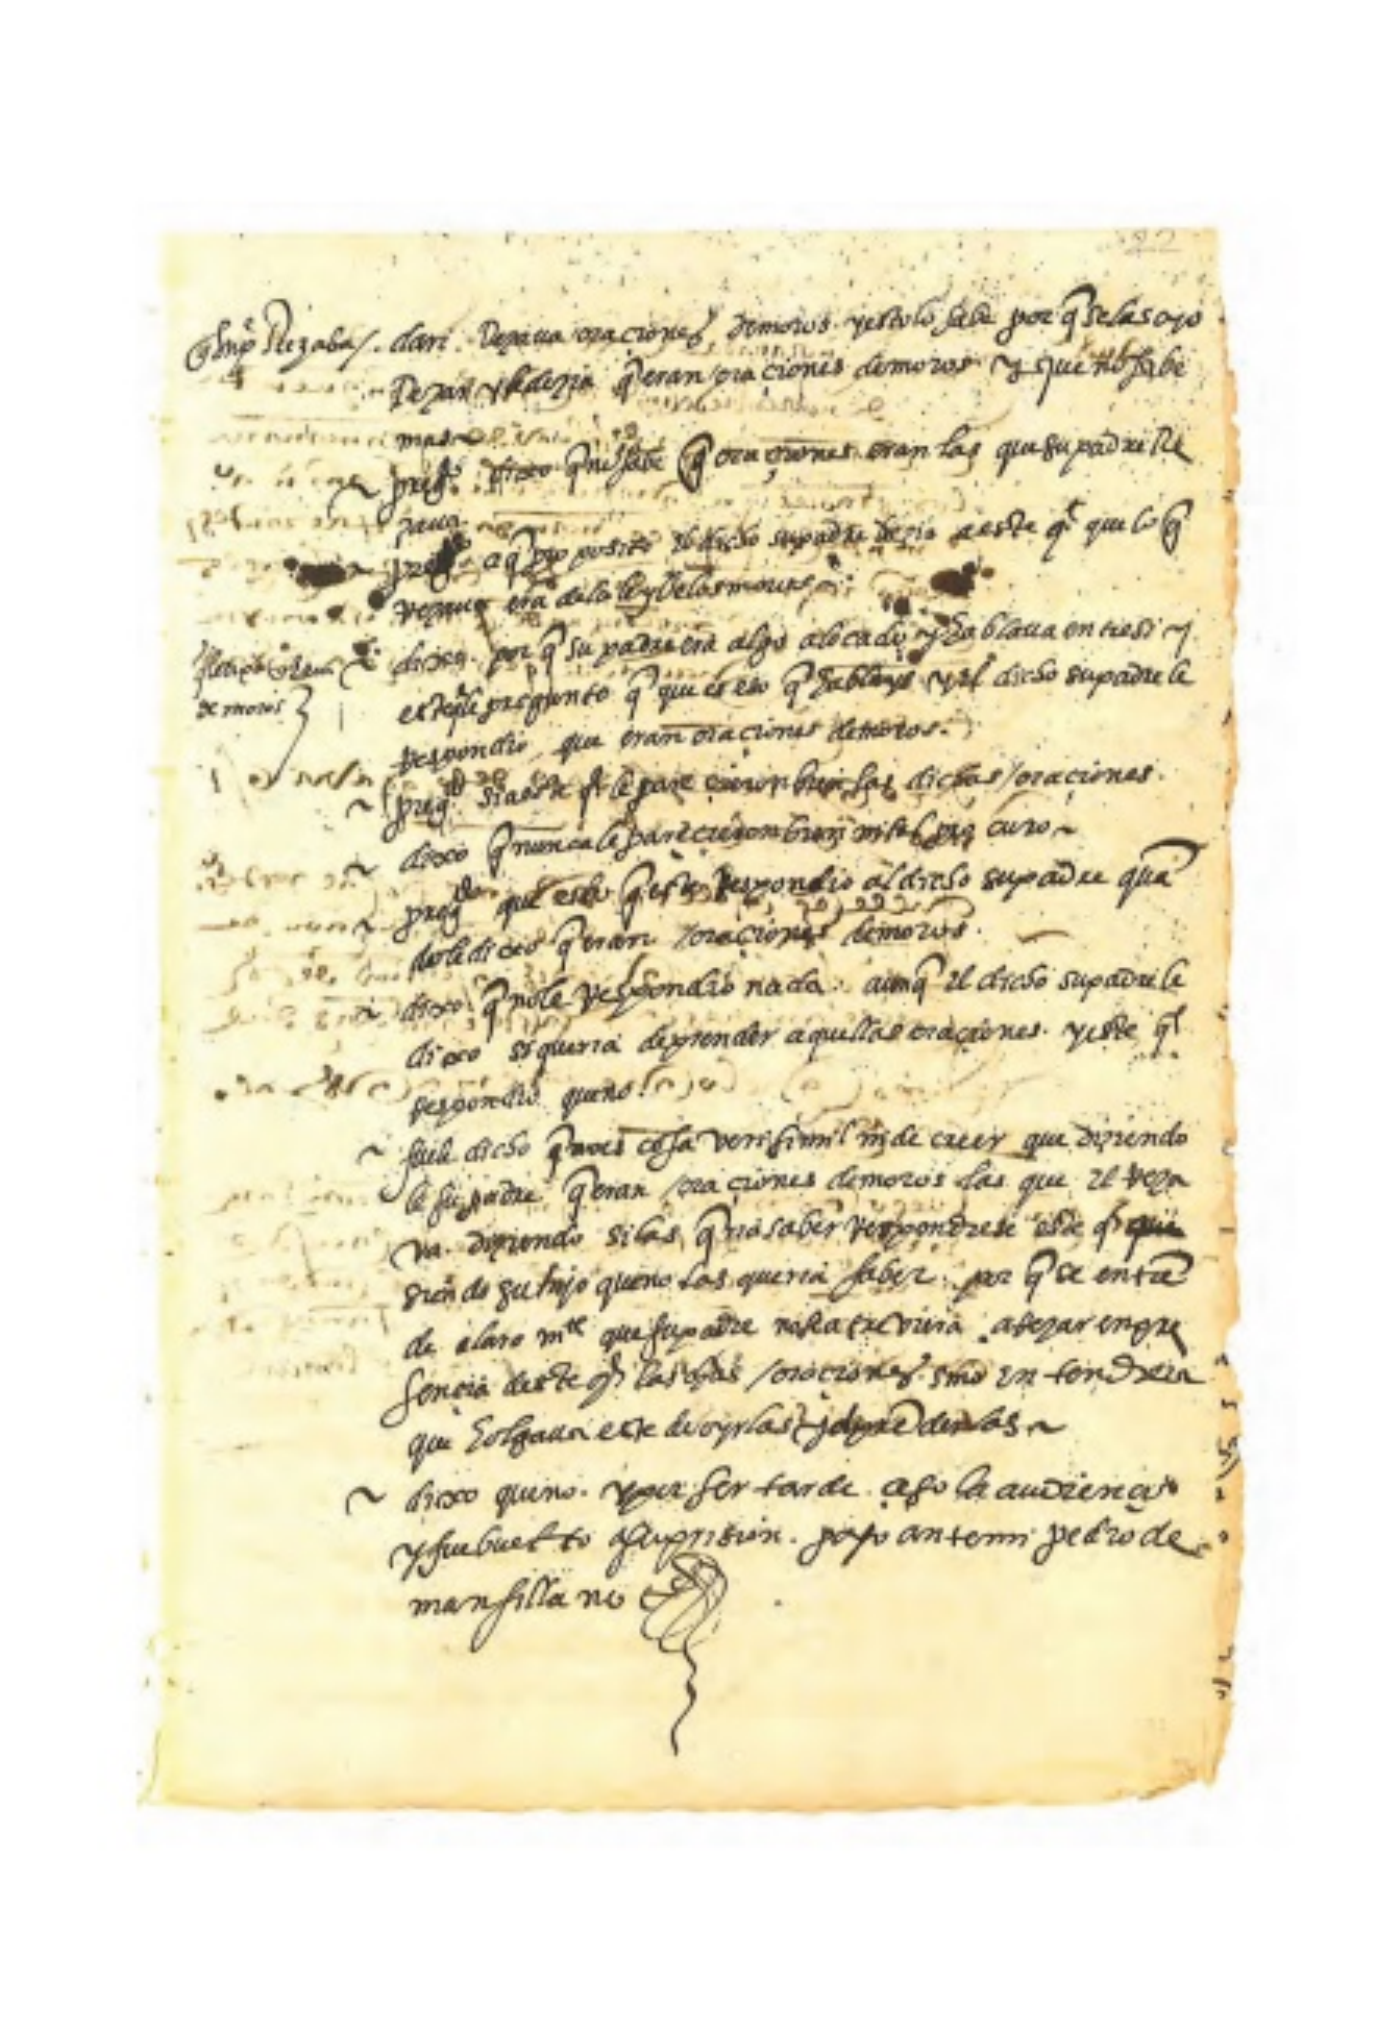 22
dari. Rezaua oraciones de moros. y esto lo sabe por q̃ se las oyo
Rezar y le dezia q̃ eran oraciones de moros y que no sabe
mas
pregdo dixo q̃ no sabe q̃ oraciones eran las que su padre Re
zaua
pregdo a q̃ proposito el dicho su padre dezia a este q̃ que lo q̃
rezaua era de la ley de los moros
dixo. por q̃ su padre era algo alocado y hablaua entre si y
este q̃ le pregunto q̃ que es eso q̃ hablays y el dicho su padre le
respondio que eran oraciones de moros.
de moros
pregdo si a este q̃ le parecieron bien las dichas oraciones.
dixo q̃ nunca le parecieron bien ni tal procuro
pregdo que es lo q̃ este respondio al dicho su padre quã
do le dixo q̃ eran oraciones de moros.
dixo q̃ no le respondio nada. aunq̃ el dicho su padre le
dixo si queria deprender aquellas oraciones. y este q̃
respondio que no.
fuele dicho q̃ no es cosa verisimil ni de creer que diziendo
le su padre q̃ eran oraciones de moros las que el reza
va. diziendo si las q̃ria saber respondiese este q̃
siendo su hijo que no las queria saber. por q̃ se entiẽ
de claro mte que su padre no se atreviria a rezar en pre
sencia deste q̃ las dhas oraciones. sino entendiera
que holgaua este de oyrlas y deprẽderlas
dixo que no. y por ser tarde ceso la audiencia
y fue buelto a su prision. paso ante mi pedro de
mansilla no